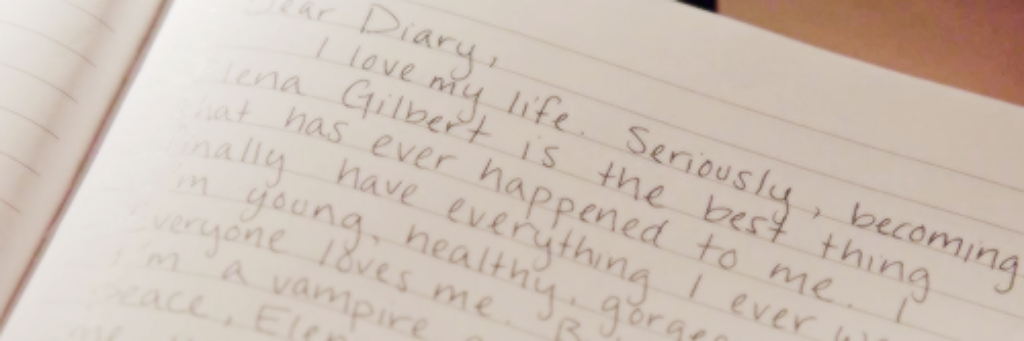 Dear Diary,
I love my life. Seriously, becoming
Elena Gilbert is the best thing
that has ever happened to me. I
finally have everything I ever
I'm young, healthy,
Everyone loves me.
I'm a vampire
peace,